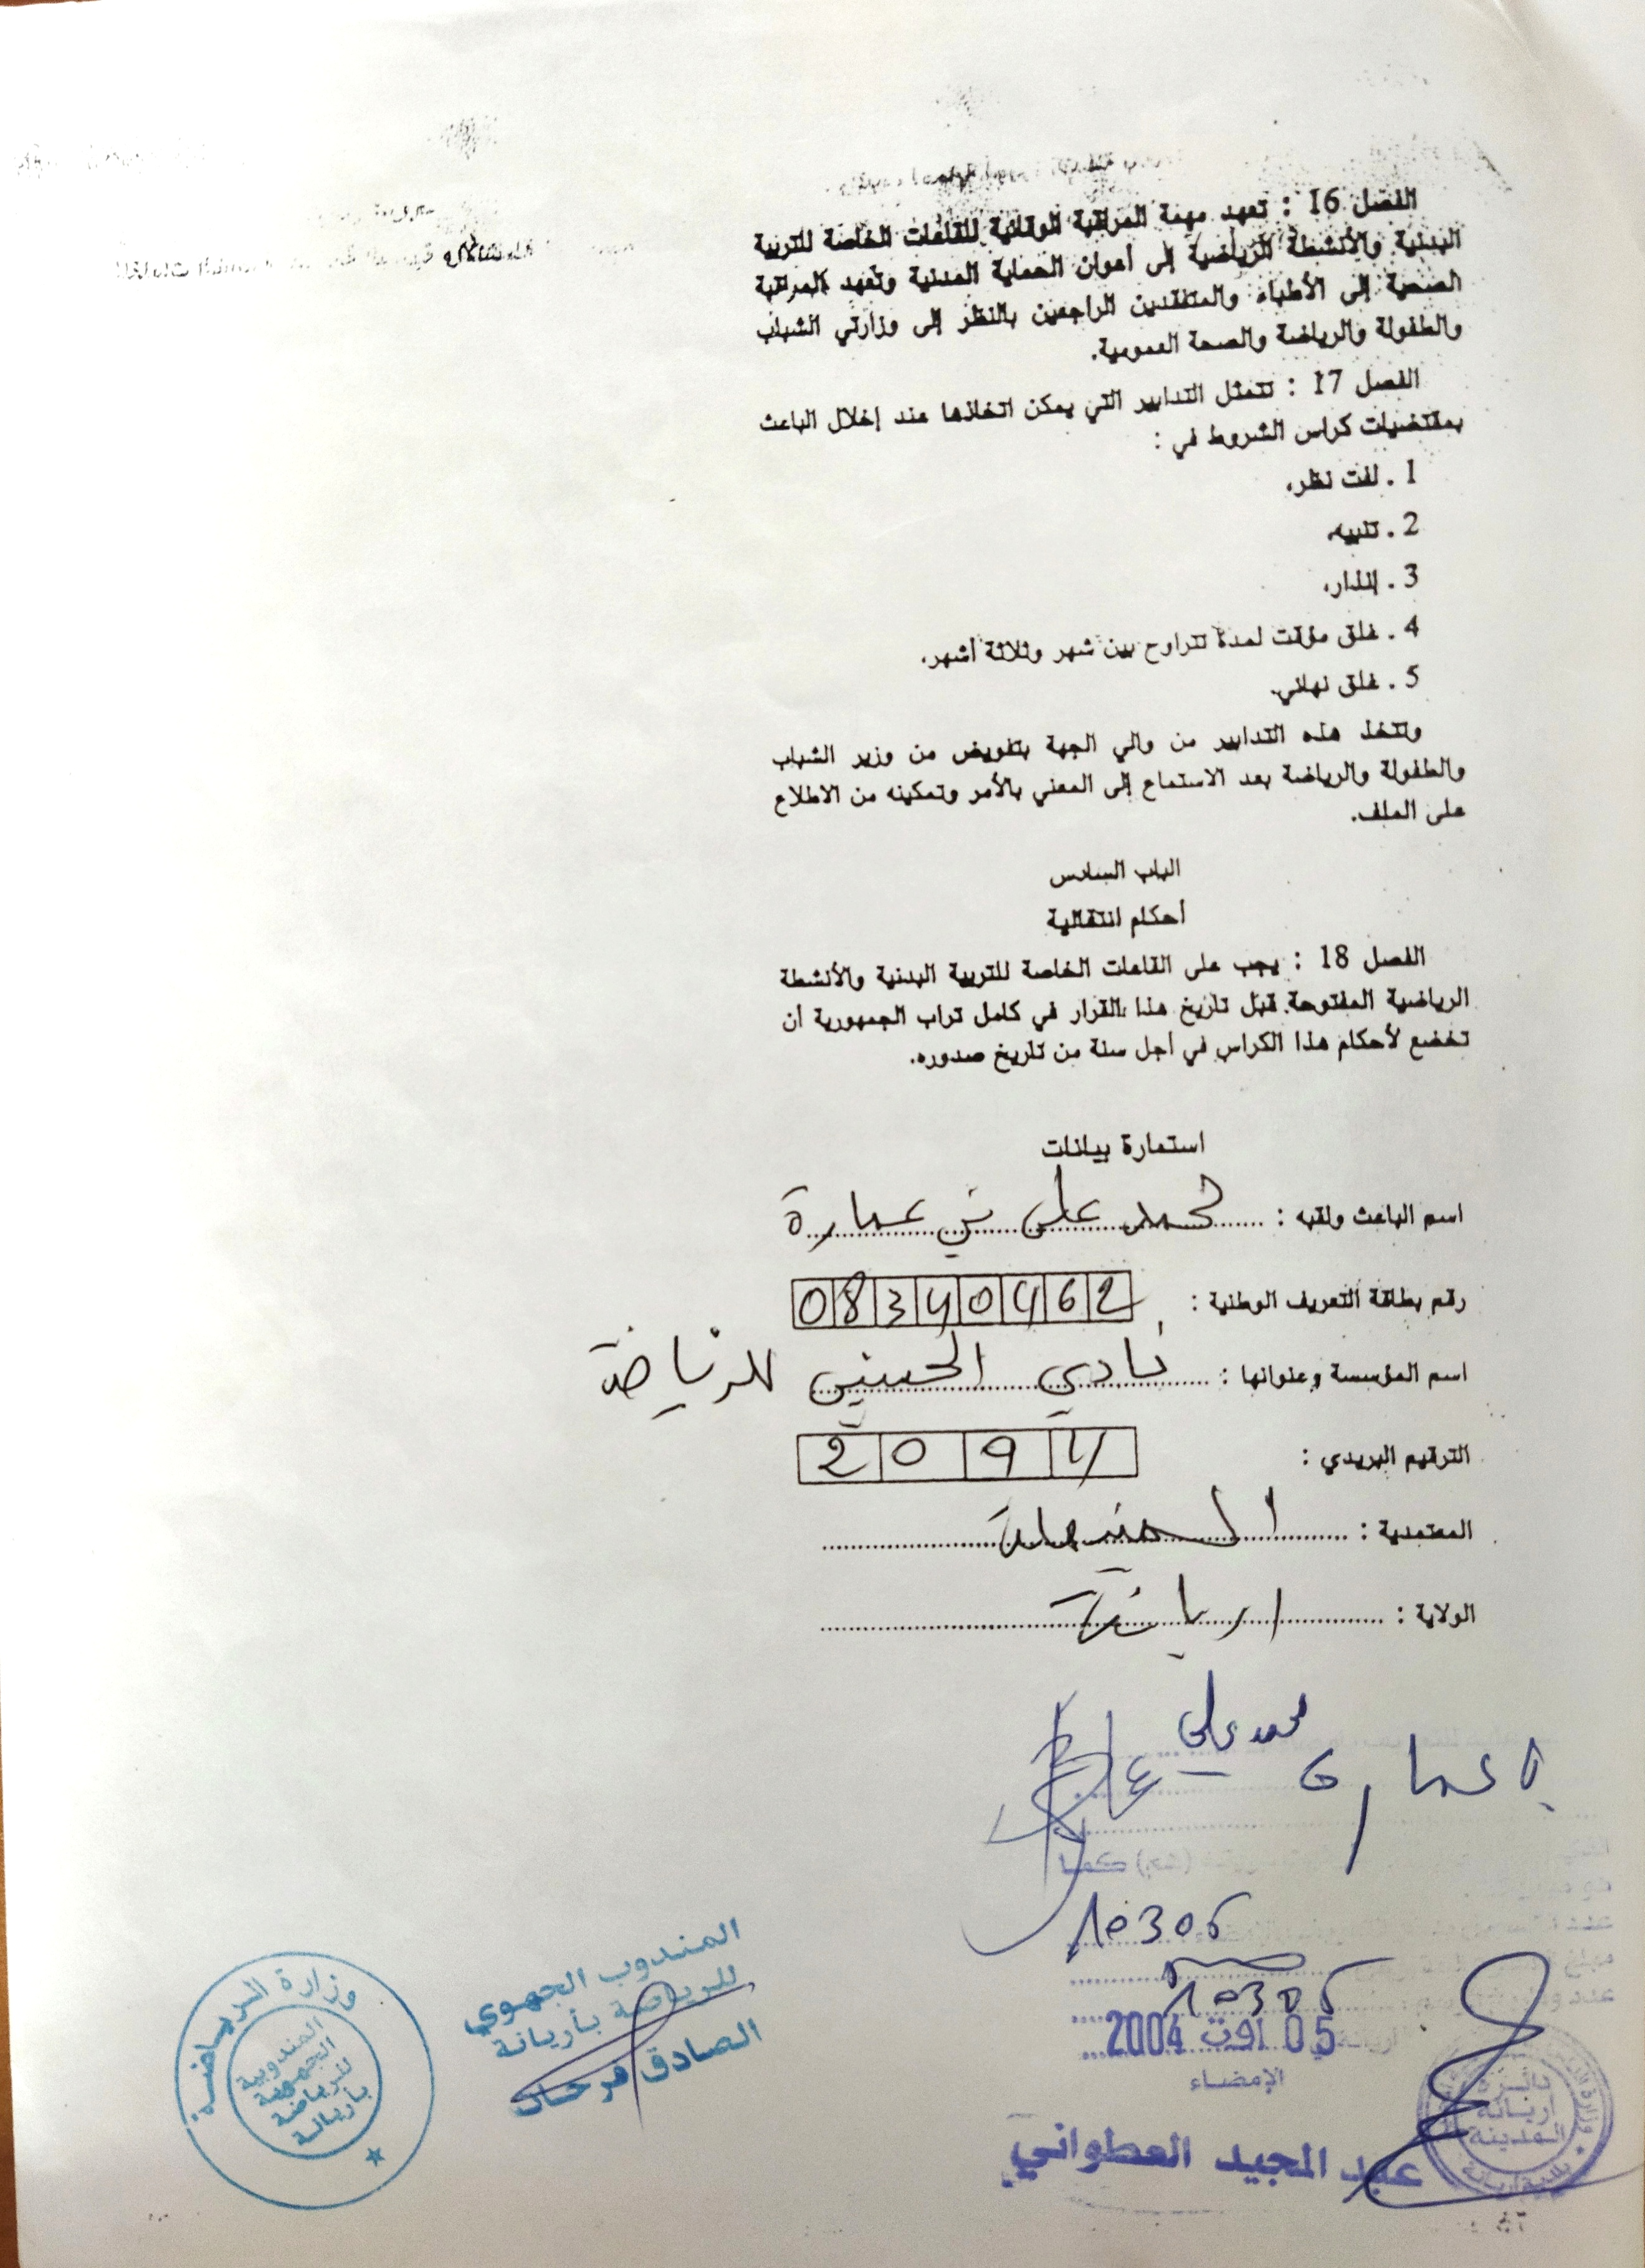 الفصل 16 : تعهد مهمة المراقبة الوقائية للقاعات الخاصة للتربية
البدنية والأنشطة الرياضية إلى أعوان الحماية المدنية وتعهد المراقبة
الصحية إلى الأطباء والمتفقدين الراجعين بالنظر إلى وزارتي الشباب
والطفولة والرياضة والصحة العمومية.
الفصل 17 : تتمثل التدابير التي يمكن اتخاذها عند إخلال الباعث
بمقتضيات كراس الشروط في :
1 . لفت نظر.
2 . تنبيه.
3 . إنذار.
4 . غلق مؤقت لمدة تتراوح بين شهر وثلاثة أشهر.
5 . غلق نهائي.
وتتخذ هذه التدابير من والي الجهة بتفويض من وزير الشباب
والطفولة والرياضة بعد الاستماع إلى المعني بالأمر وتمكينه من الاطلاع
على الملف.
الباب السادس
أحكام انتقالية
الفصل 18 : يجب على القاعات الخاصة للتربية البدنية والأنشطة
الرياضية المفتوحة قبل تاريخ هذا القرار في كامل تراب الجمهورية أن
تخضع لأحكام هذا الكراس في أجل سنة من تاريخ صدوره.
استمارة بيانات
اسم الباعث ولقبه : محمد علي بن عمارة
رقم بطاقة التعريف الوطنية : 08340462
اسم المؤسسة وعنوانها : نادي الحسني للرياضة
الترقيم البريدي : 2094
المعتمدية : المنيهلة
الولاية : اريانة
محمد علي
بن عمارة
10306
10305
05 اوت 2004
الإمضاء
عبد المجيد العطواني
دائرة
أريانة
المدينة
بلدية أريانة
المندوب الجهوي
للرياضة بأريانة
الصادق فرحات
وزارة الرياضة
المندوبية
الجهوية
للرياضة
بأريانة